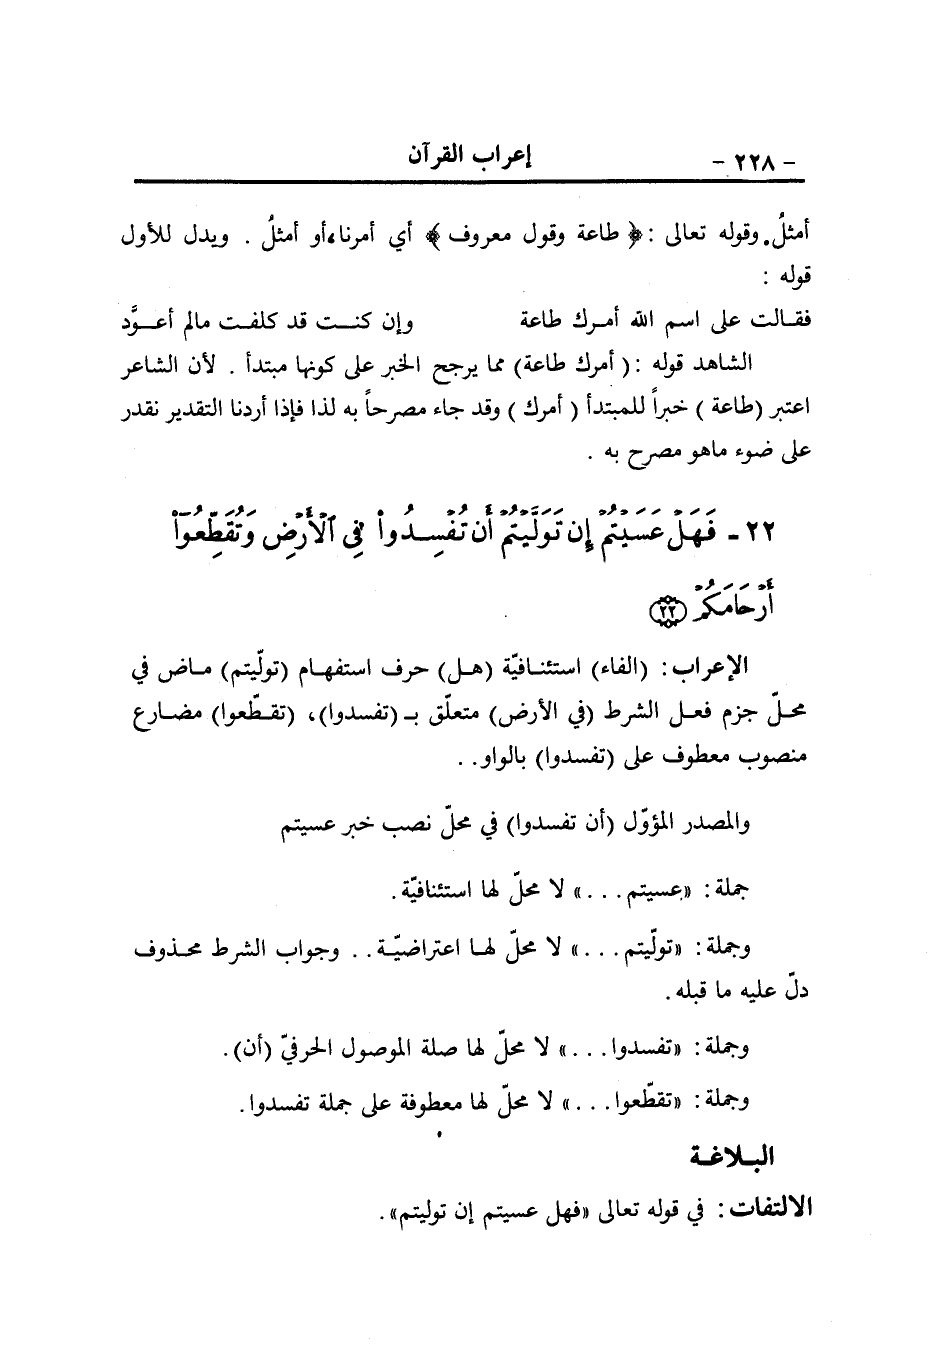 - ٢٢٨ - إعراب القرآن
أمثلُ. وقوله تعالى : ﴿ طاعة وقول معروف ﴾ أي أمرنا، أو أمثلُ . ويدل للأول
قوله :
فقـالت على اسم الله أمـرك طاعة وإن كنـــت قد كلفـت مالم أعـــوَّد
الشاهد قوله : ( أمرك طاعة) مما يرجح الخبر على كونها مبتدأ . لأن الشاعر
اعتبر (طاعة ) خبراً للمبتدأ ( أمرك ) وقد جاء مصرحاً به لذا فإذا أردنا التقدير نقدر
على ضوء ماهو مصرح به .
٢٢ - فَهَلْ عَسَيْتُمْ إِن تَوَلَّيْتُمْ أَن تُفْسِدُوا۟ فِي ٱلْأَرْضِ وَتُقَطِّعُوٓا۟
أَرْحَامَكُمْ ﴿٢٢﴾
الإعراب : (الفاء) استئنـافيّة (هـل) حرف استفهـام (تولّيتم) مـاض في
محـلّ جزم فعـل الشرط (في الأرض) متعلّق بـ (تفسدوا)، (تقـطّعوا) مضـارع
منصوب معطوف على (تفسدوا) بالواو. .
والمصدر المؤوّل (أن تفسدوا) في محلّ نصب خبر عسيتم
جملة : «عسيتم. . .» لا محلّ لها استئنافيّة .
وجملة : «تولّيتم. . .» لا محلّ لهـا اعتراضيّـة. . وجواب الشرط محـذوف
دلّ عليه ما قبله .
وجملة : «تفسدوا. . .» لا محلّ لها صلة الموصول الحرفيّ (أن).
وجملة : «تقطّعوا. . .» لا محلّ لها معطوفة على جملة تفسدوا.
البـلاغـة
الالتفات : في قوله تعالى «فهل عسيتم إن توليتم».